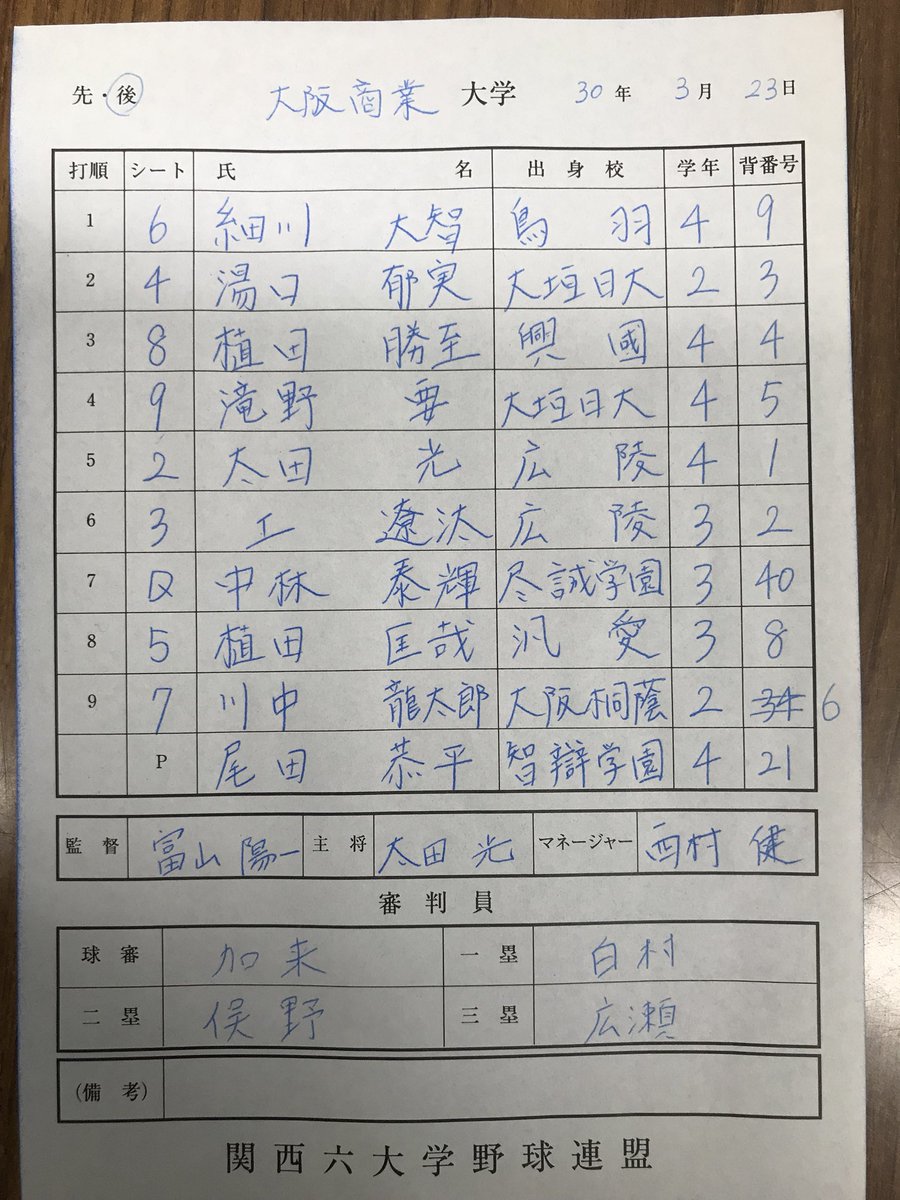 先・後 大阪商業 大学 30年 3月 23日
打順 シート 氏 名 出身校 学年 背番号
1 6 細川 大智 鳥羽 4 9
2 4 湯口 郁実 大垣日大 2 3
3 8 植田 勝至 興國 4 4
4 9 滝野 要 大垣日大 4 5
5 2 太田 光 広陵 4 1
6 3 エ 遼汰 広陵 3 2
7 D 中林 泰輝 尽誠学園 3 40
8 5 植田 匡哉 汎愛 3 8
9 7 川中 龍太郎 大阪桐蔭 2 34 6
P 尾田 恭平 智辯学園 4 21
監督 富山 陽一 主将 太田 光 マネージャー 西村 健
審判員
球審 加来 一塁 白村
二塁 俣野 三塁 広瀬
(備考)
関西六大学野球連盟